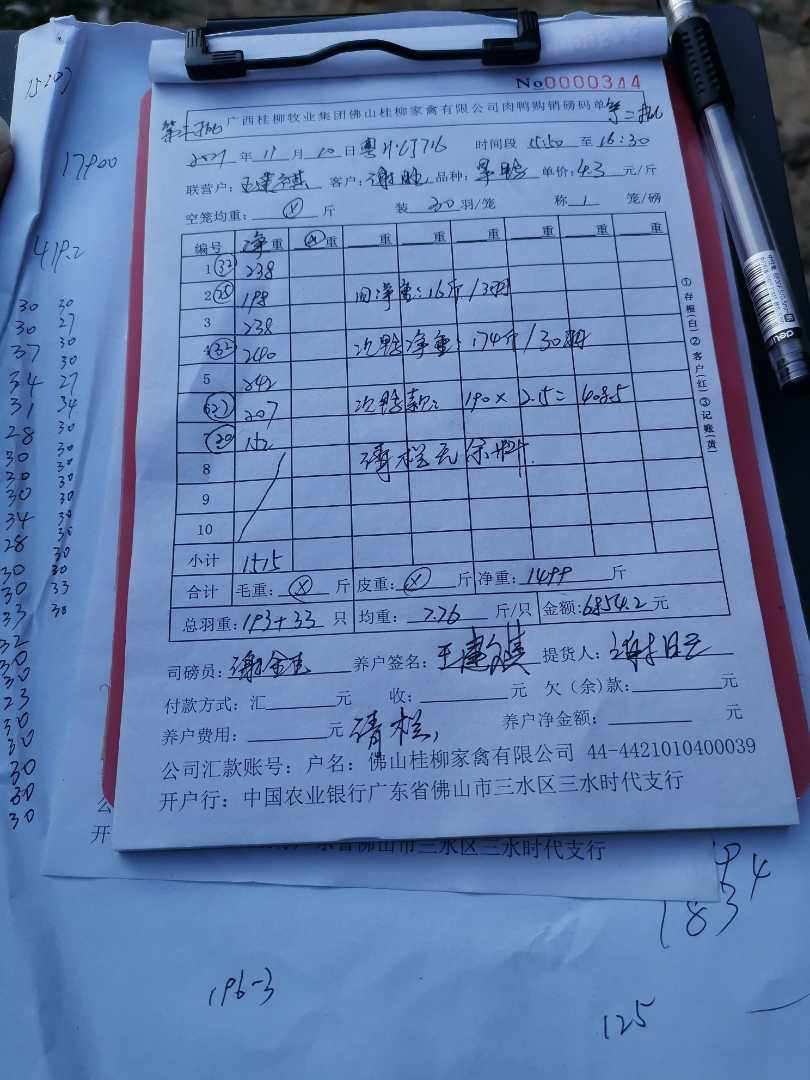 No0000344
广西桂柳牧业集团佛山桂柳家禽有限公司肉鸭购销磅码单
第二批
2021年11月10日 时间段 15:50 至 16:30
联营户: 客户: 品种: 单价: 4.3 元/斤
空笼均重: X 斤 装 30 羽/笼 称 1 笼/磅
编号 净重 重 重 重 重 重 重 重
1 (32) 238
2 (25) 198 回净重:16斤/3羽
3 238
4 (32) 240 次鸭净重:174斤/30羽
5 242
6 (27) 207 次鸭款: 190 × 2.15 = 408.5
7 (20) 152
8 清栏无余料.
9
10
小计 1515
合计 毛重: X 斤 皮重: X 斤 净重: 1499 斤
总羽重: 193+33 只 均重: 7.76 斤/只 金额: 6854.2 元
司磅员: 养户签名: 王建 提货人:
付款方式: 汇 元 收: 元 欠(余)款: 元
养户费用: 元 清栏, 养户净金额: 元
公司汇款账号: 户名: 佛山桂柳家禽有限公司 44-4421010400039
开户行: 中国农业银行广东省佛山市三水区三水时代支行
①存根(白)②客户(红)③记账(黄)
deli
17900
419.2
30 30
30 27
37 30
34 30
31 27
28 34
30 30
30 30
30 30
34 30
28 30
30 30
30 30
33 30
32 33
30 30
30
23
30
30
30
30
30
公
开
东省佛山市三水区三水时代支行
183
4
196-3
125